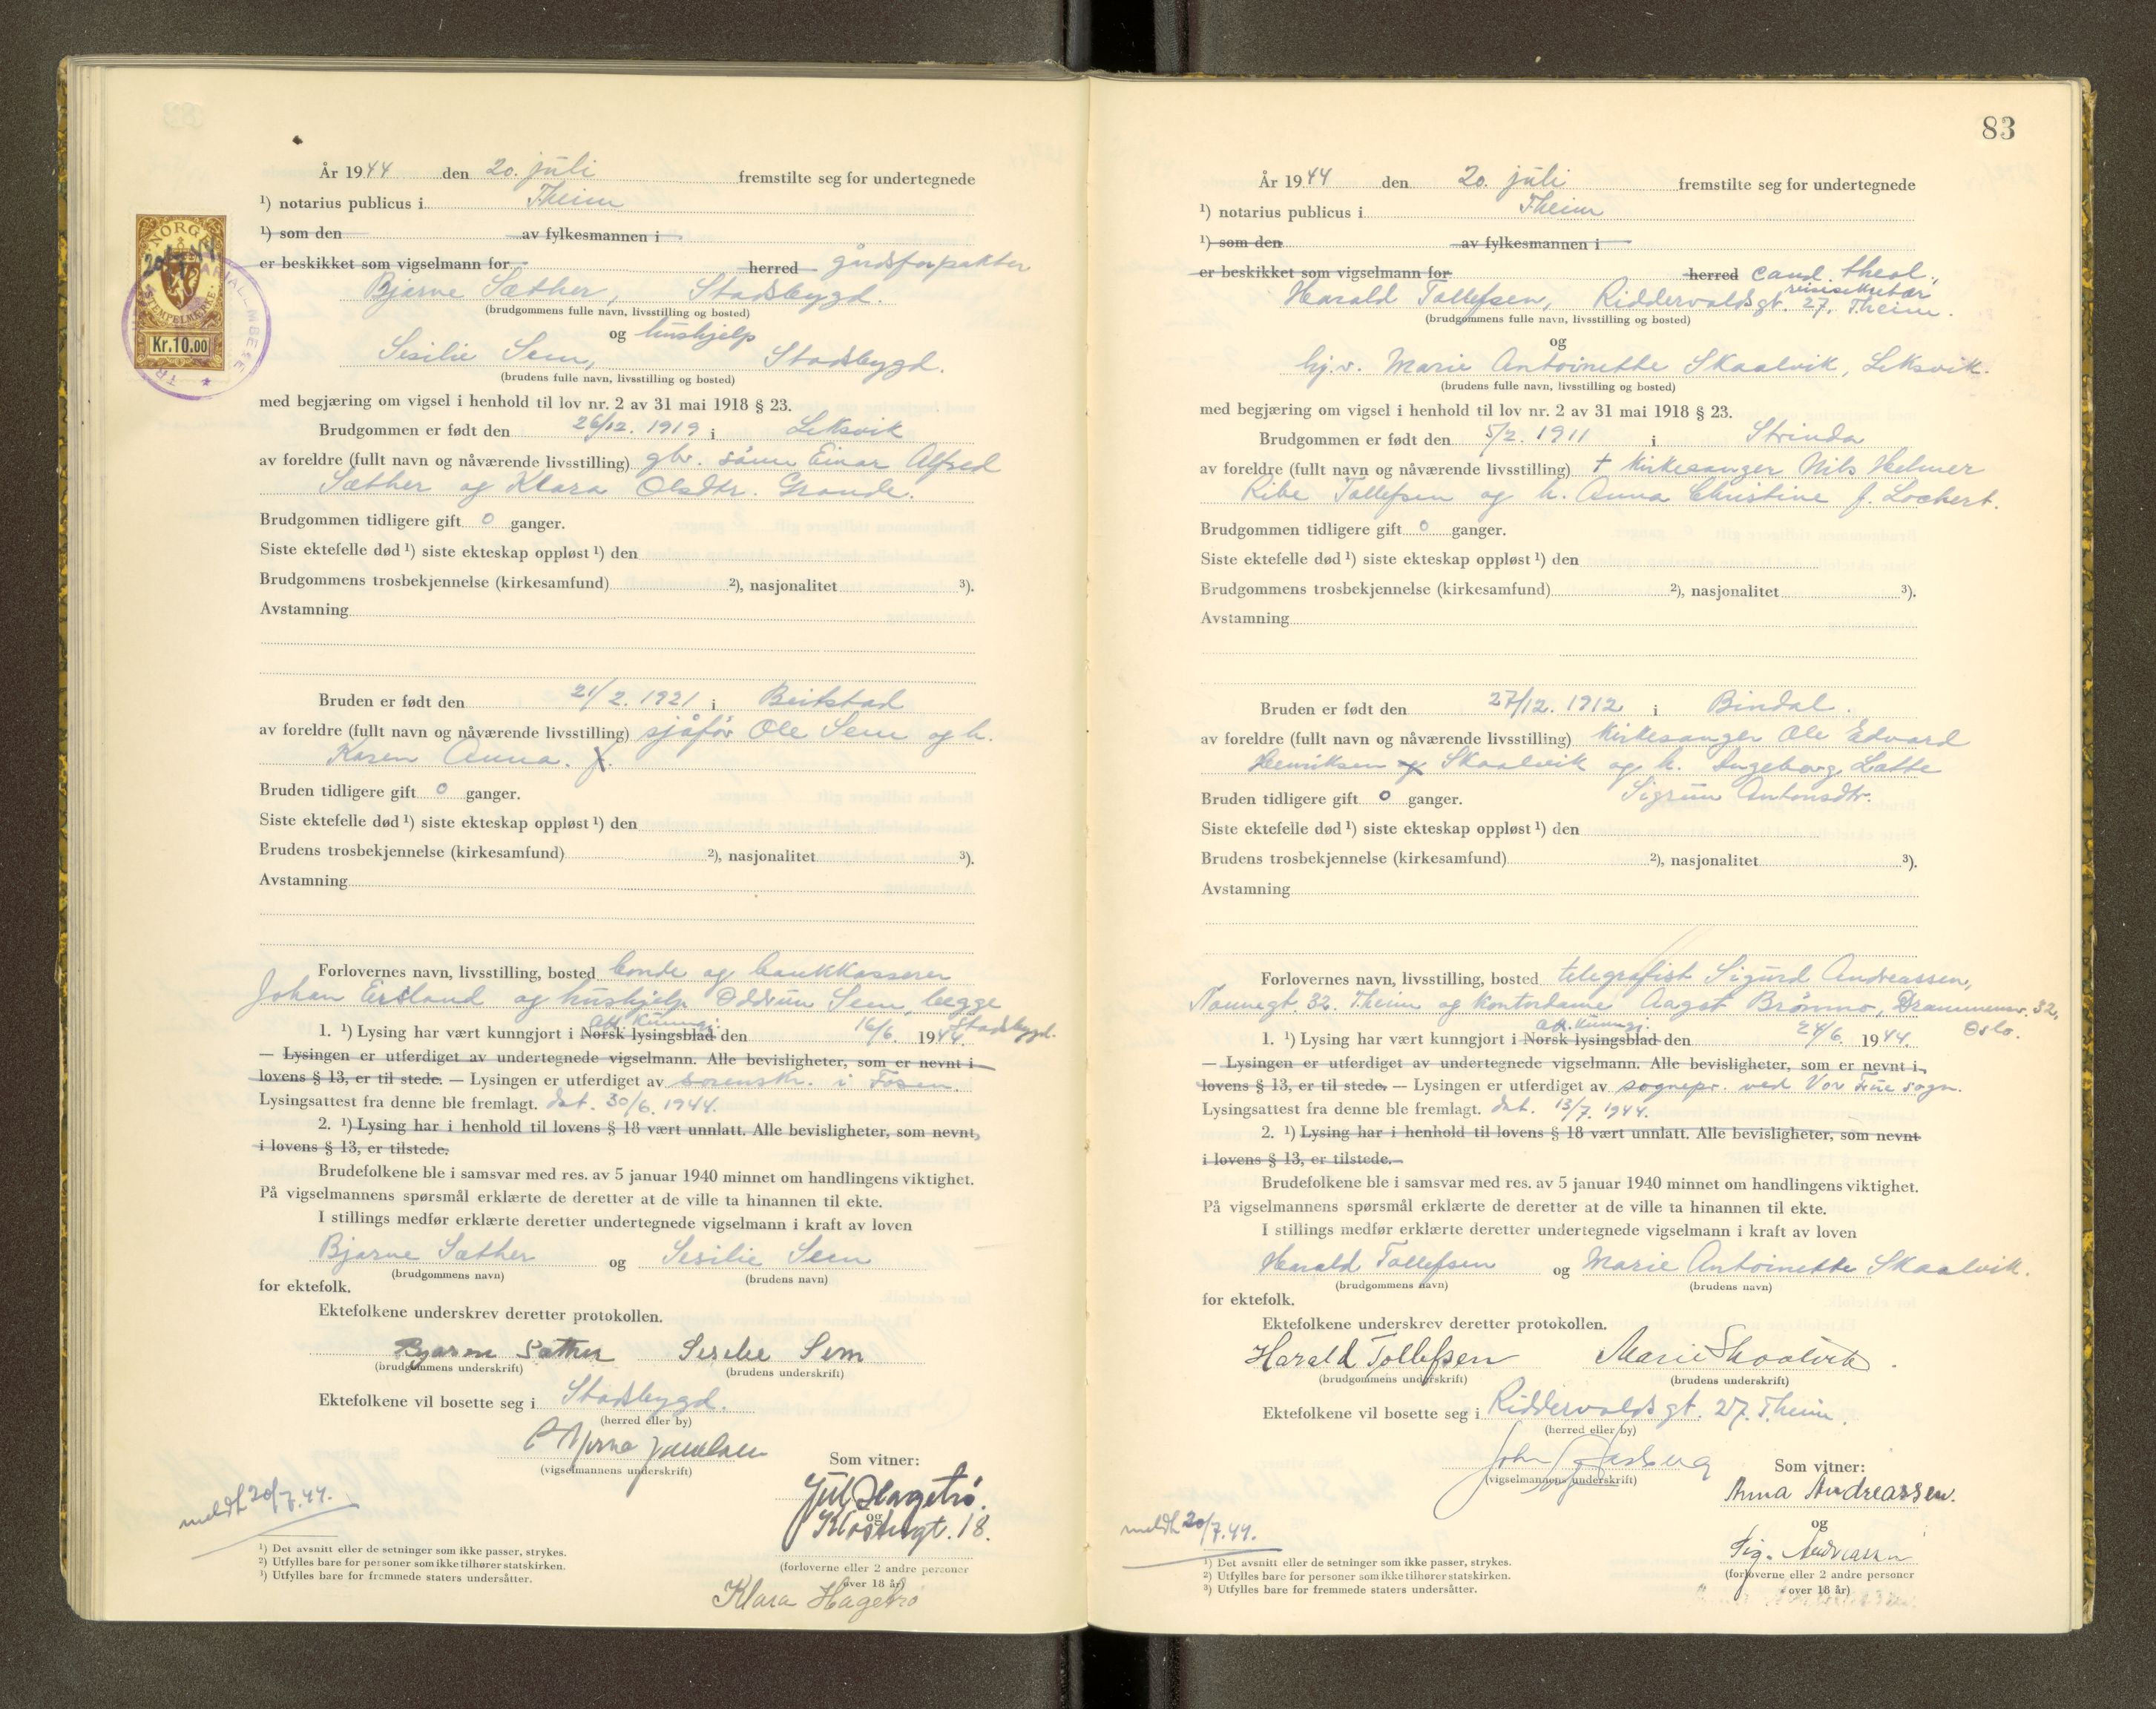 År 1944 den 20. juli fremstilte seg for undertegnede
¹) notarius publicus i Theim
¹) som den av fylkesmannen i
er beskikket som vigselmann for herred gårdsforpakter
Bjarne Sæther, Stadsbygd.
(brudgommens fulle navn, livsstilling og bosted)
og hushjelp
Sesilie Sem, Stadsbygd.
(brudens fulle navn, livsstilling og bosted)
med begjæring om vigsel i henhold til lov nr. 2 av 31 mai 1918 § 23.
Brudgommen er født den 26/12. 1919 i Leksvik
av foreldre (fullt navn og nåværende livsstilling) gbr. sønn Einar Alfred
Sæther og Klara Olsdtr. Grande.
Brudgommen tidligere gift 0 ganger.
Siste ektefelle død ¹) siste ekteskap oppløst ¹) den
Brudgommens trosbekjennelse (kirkesamfund) ²), nasjonalitet ³).
Avstamning
Bruden er født den 21/2. 1921 i Beitstad
av foreldre (fullt navn og nåværende livsstilling) sjåfør Ole Sem og h.
Karen Anna.
Bruden tidligere gift 0 ganger.
Siste ektefelle død ¹) siste ekteskap oppløst ¹) den
Brudens trosbekjennelse (kirkesamfund) ²), nasjonalitet ³).
Avstamning
Forlovernes navn, livsstilling, bosted bonde og bankkasserer
Johan Ersland og hushjelp Oddrun Sem, begge
Stadsbygd.
1. ¹) Lysing har vært kunngjort i Norsk lysingsblad den 16/6. 1944.
— Lysingen er utferdiget av undertegnede vigselmann. Alle bevisligheter, som er nevnt i
lovens § 13, er til stede. — Lysingen er utferdiget av sorenskr. i Fosen.
Lysingsattest fra denne ble fremlagt. dat. 30/6. 1944.
2. ¹) Lysing har i henhold til lovens § 18 vært unnlatt. Alle bevisligheter, som nevnt
i lovens § 13, er tilstede.
Brudefolkene ble i samsvar med res. av 5 januar 1940 minnet om handlingens viktighet.
På vigselmannens spørsmål erklærte de deretter at de ville ta hinannen til ekte.
I stillings medfør erklærte deretter undertegnede vigselmann i kraft av loven
Bjarne Sæther og Sesilie Sem
(brudgommens navn) (brudens navn)
for ektefolk.
Ektefolkene underskrev deretter protokollen.
Bjarne Sæther Sesilie Sem
(brudgommens underskrift) (brudens underskrift)
Ektefolkene vil bosette seg i Stadsbygd.
(herred eller by)
(vigselmannens underskrift)
Som vitner:
Jul Hagetrø.
og
Klostergt. 18.
(forloverne eller 2 andre personer
over 18 år)
Klara Hagetrø
meldt 20/7.44.
¹) Det avsnitt eller de setninger som ikke passer, strykes.
²) Utfylles bare for personer som ikke tilhører statskirken.
³) Utfylles bare for fremmede staters undersåtter.
NORGE
STEMPELMERKE
Kr.10.00
83
År 1944 den 20. juli fremstilte seg for undertegnede
¹) notarius publicus i Theim
¹) som den av fylkesmannen i
er beskikket som vigselmann for herred cand. theol.,
reisesekretær
Harald Tollefsen, Riddervoldsgt. 27. Theim.
(brudgommens fulle navn, livsstilling og bosted)
og
hj.v. Marie Antoinette Skaalvik, Leksvik.
(brudens fulle navn, livsstilling og bosted)
med begjæring om vigsel i henhold til lov nr. 2 av 31 mai 1918 § 23.
Brudgommen er født den 5/2. 1911 i Strinda
av foreldre (fullt navn og nåværende livsstilling) † kirkesanger Nils Helmer
Ribe Tollefsen og h. Anna Christine f. Lockert.
Brudgommen tidligere gift 0 ganger.
Siste ektefelle død ¹) siste ekteskap oppløst ¹) den
Brudgommens trosbekjennelse (kirkesamfund) ²), nasjonalitet ³).
Avstamning
Bruden er født den 27/12. 1912 i Bindal.
av foreldre (fullt navn og nåværende livsstilling) kirkesanger Ole Edvard
Henriksen og Skaalvik og h. Ingeborg Lotte
Sigrun Antonsdtr.
Bruden tidligere gift 0 ganger.
Siste ektefelle død ¹) siste ekteskap oppløst ¹) den
Brudens trosbekjennelse (kirkesamfund) ²), nasjonalitet ³).
Avstamning
Forlovernes navn, livsstilling, bosted telegrafist Sigurd Andreassen,
32. Theim og kontordame Aagot Brønmo, Drammensv. 32,
Oslo.
1. ¹) Lysing har vært kunngjort i Norsk lysingsblad den 24/6. 1944.
— Lysingen er utferdiget av undertegnede vigselmann. Alle bevisligheter, som er nevnt i
lovens § 13, er til stede. — Lysingen er utferdiget av sognepr. ved Vor Frue sogn.
Lysingsattest fra denne ble fremlagt. dat. 13/7. 1944.
2. ¹) Lysing har i henhold til lovens § 18 vært unnlatt. Alle bevisligheter, som nevnt
i lovens § 13, er tilstede.
Brudefolkene ble i samsvar med res. av 5 januar 1940 minnet om handlingens viktighet.
På vigselmannens spørsmål erklærte de deretter at de ville ta hinannen til ekte.
I stillings medfør erklærte deretter undertegnede vigselmann i kraft av loven
Harald Tollefsen og Marie Antoinette Skaalvik.
(brudgommens navn) (brudens navn)
for ektefolk.
Ektefolkene underskrev deretter protokollen.
Harald Tollefsen Marie Skaalvik.
(brudgommens underskrift) (brudens underskrift)
Ektefolkene vil bosette seg i Riddervoldsgt. 27. Theim.
(herred eller by)
John Aasberg
(vigselmannens underskrift)
Som vitner:
Anna Andreassen.
og
Sig. Andreassen
(forloverne eller 2 andre personer
over 18 år)
meldt 20/7.44.
¹) Det avsnitt eller de setninger som ikke passer, strykes.
²) Utfylles bare for personer som ikke tilhører statskirken.
³) Utfylles bare for fremmede staters undersåtter.